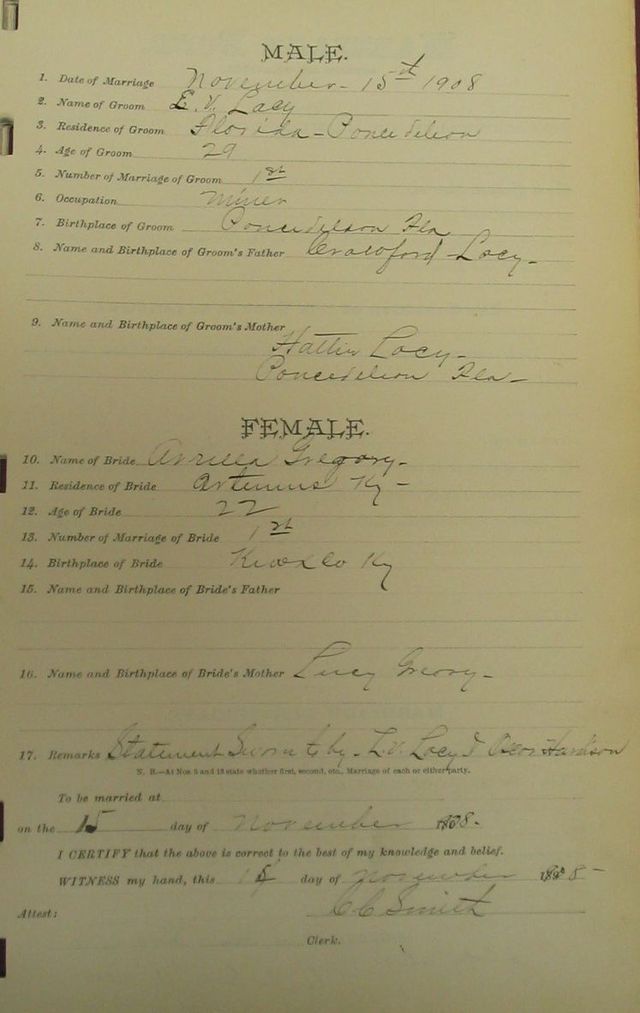 MALE.
1. Date of Marriage November - 15st 1908
2. Name of Groom E. V. Lacy
3. Residence of Groom Florida - Poncedeleon
4. Age of Groom 29
5. Number of Marriage of Groom 1st
6. Occupation Miner
7. Birthplace of Groom Poncedeleon Fla
8. Name and Birthplace of Groom's Father Crawford Lacy -
9. Name and Birthplace of Groom's Mother
Hattie Lacy -
Poncedeleon Fla -
FEMALE.
10. Name of Bride Gregory -
11. Residence of Bride Artemus Ky -
12. Age of Bride 22
13. Number of Marriage of Bride 1st
14. Birthplace of Bride Knox Co Ky
15. Name and Birthplace of Bride's Father
16. Name and Birthplace of Bride's Mother Lucy -
17. Remarks Statement Sworn to by - Lacy &
N. B.—At Nos 5 and 13 state whether first, second, etc., Marriage of each or either party.
To be married at
on the 15 day of November 1908 -
I CERTIFY that the above is correct to the best of my knowledge and belief.
WITNESS my hand, this day of November
Attest: C C Smith
Clerk.